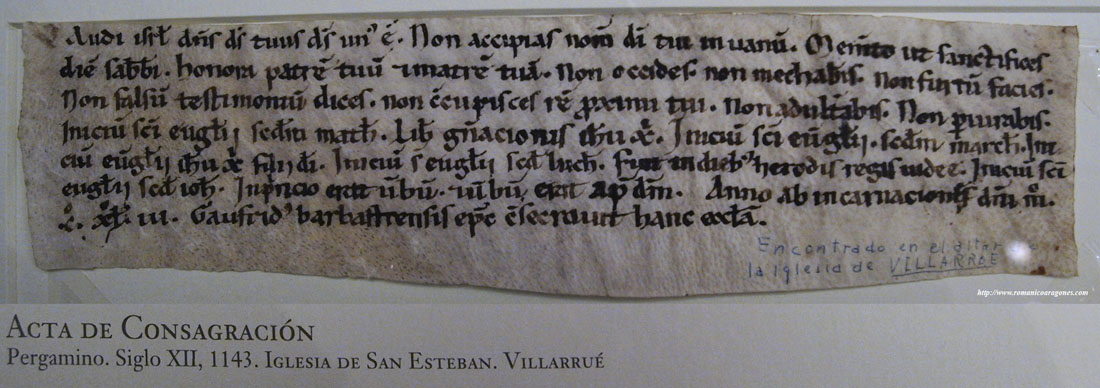 Audi isrł dn̄s ds̄ tuus ds̄ un' ē. Non accipias nom̄ dī tui in uanū. Memento ut sanctifices
diē sabbī. honora patrē tuū ⁊ matrē tuā. Non occides. non mechabis. non furtū facies.
Non falsū testimoniū dices. non c̄cupisces rē proximi tui. Non adultabis. Non piurabis.
Iniciū sc̄i euḡlij sed̄m math̄. Lib̄ gn̄acionis ih̄u xp̄i. Iniciū sc̄i euḡlij. sed̄m march̄. Ini
ciū euḡlij ih̄u xp̄i filij dī. Iniciū s euḡlij scd̄ luch̄. Fuit in dieb' herodis regis iudee. Iniciū sc̄i
euḡlij scd̄ ioh̄. In p̄ncio erat ūbū. ⁊ ūbū erat ap̄ dm̄. Anno ab incarnacione dn̄i m̄.
c̄. xl̄. iii. Gaufrid' barbastrensis ep̄c c̄secrauit hanc ecclā.
Encontrado en el altar de
la iglesia de VILLARRUE
http://www.romanicoaragones.com
ACTA DE CONSAGRACIÓN
Pergamino. Siglo XII, 1143. IGLESIA DE SAN ESTEBAN. VILLARRUÉ